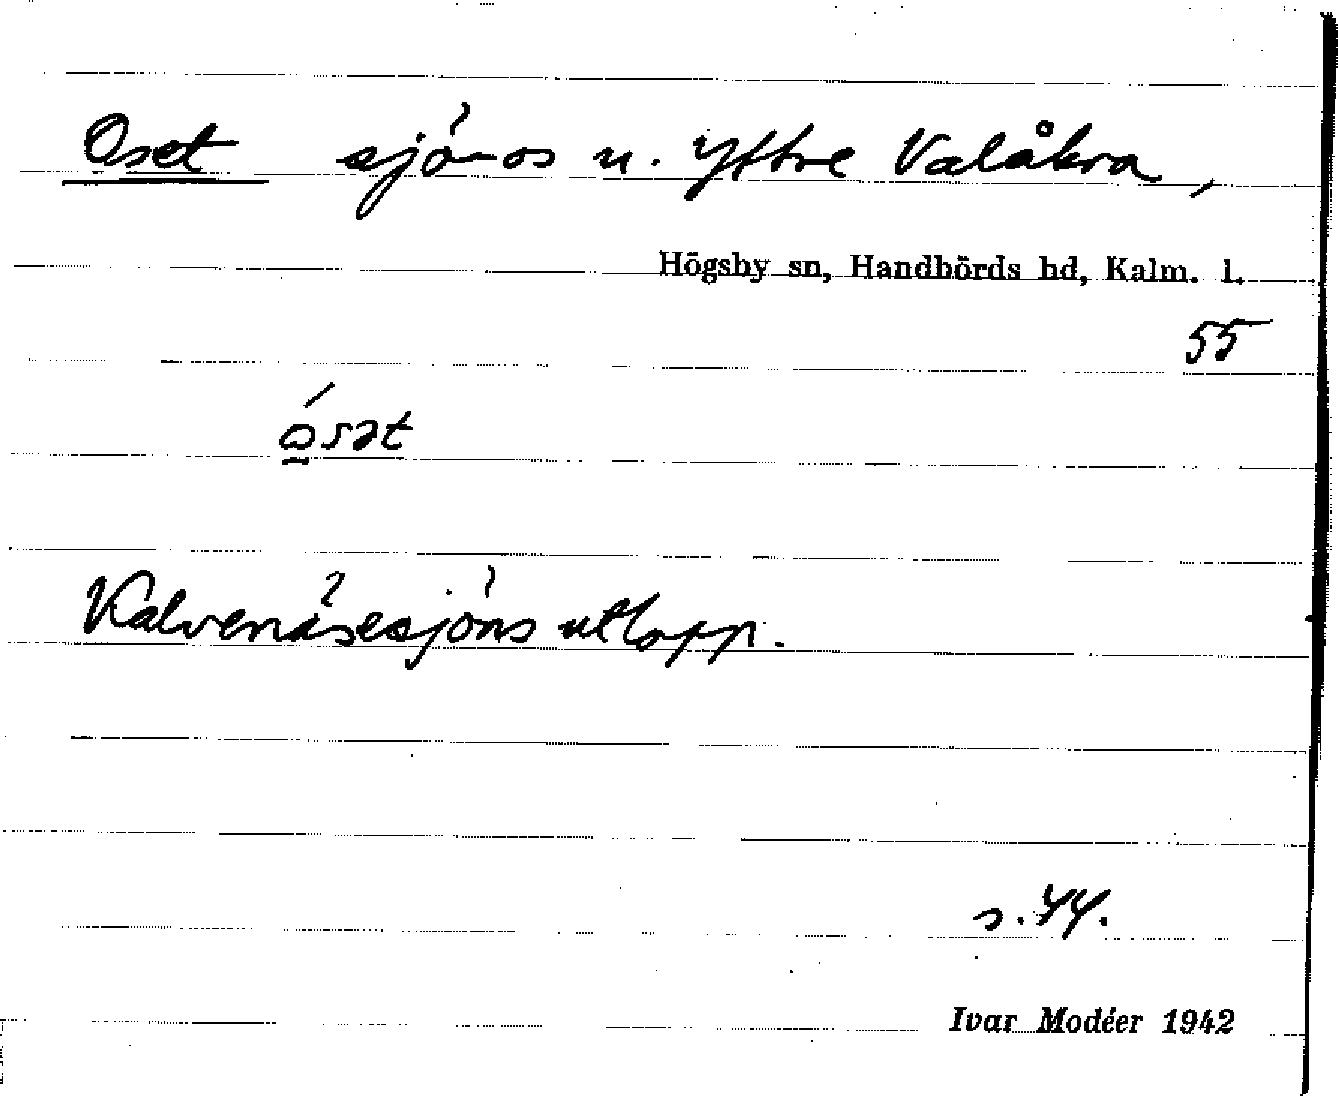 Oset sjö-os u. Yttre Valåkra,
Högsby sn, Handbörds hd, Kalm. l.
55
ó̱sət
Kalvenäsesjöns utlopp.
s. 44.
Ivar Modéer 1942